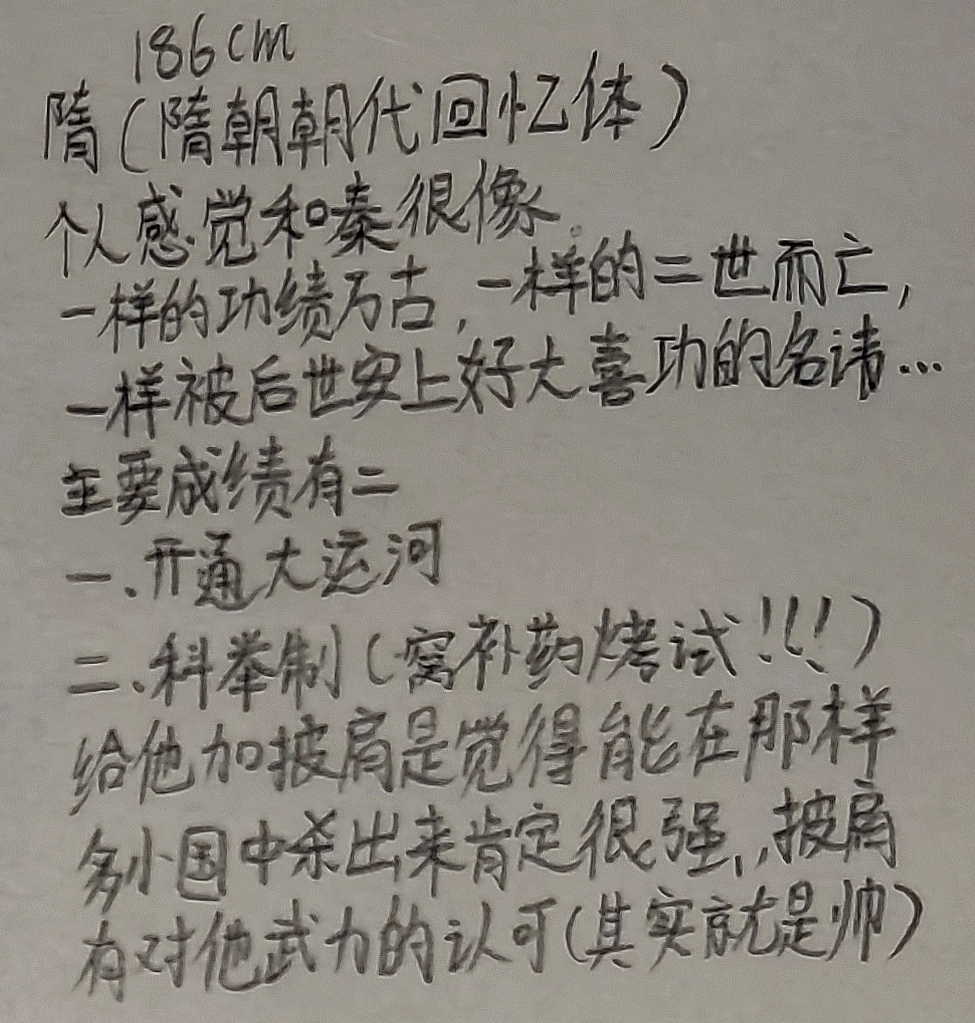 186cm
隋(隋朝朝代回忆体)
个人感觉和秦很像。
一样的功绩万古,一样的二世而亡,
一样被后世安上好大喜功的名请…
主要成绩有二
一、开通大运河
二、科举制(窝补药烤试!!!)
给他加披肩是觉得能在那样
多小国中杀出来肯定很强,,披肩
有对他武力的认可(其实就是帅)